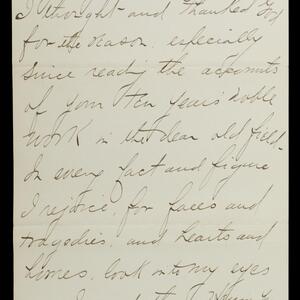 I thought and thanked God
for the reason, especially
since reading the accounts
of your ten year's noble
work in the dear old field.
In every fact and figure
I rejoice, for faces and
tragedies, and hearts and
homes, look into my eyes